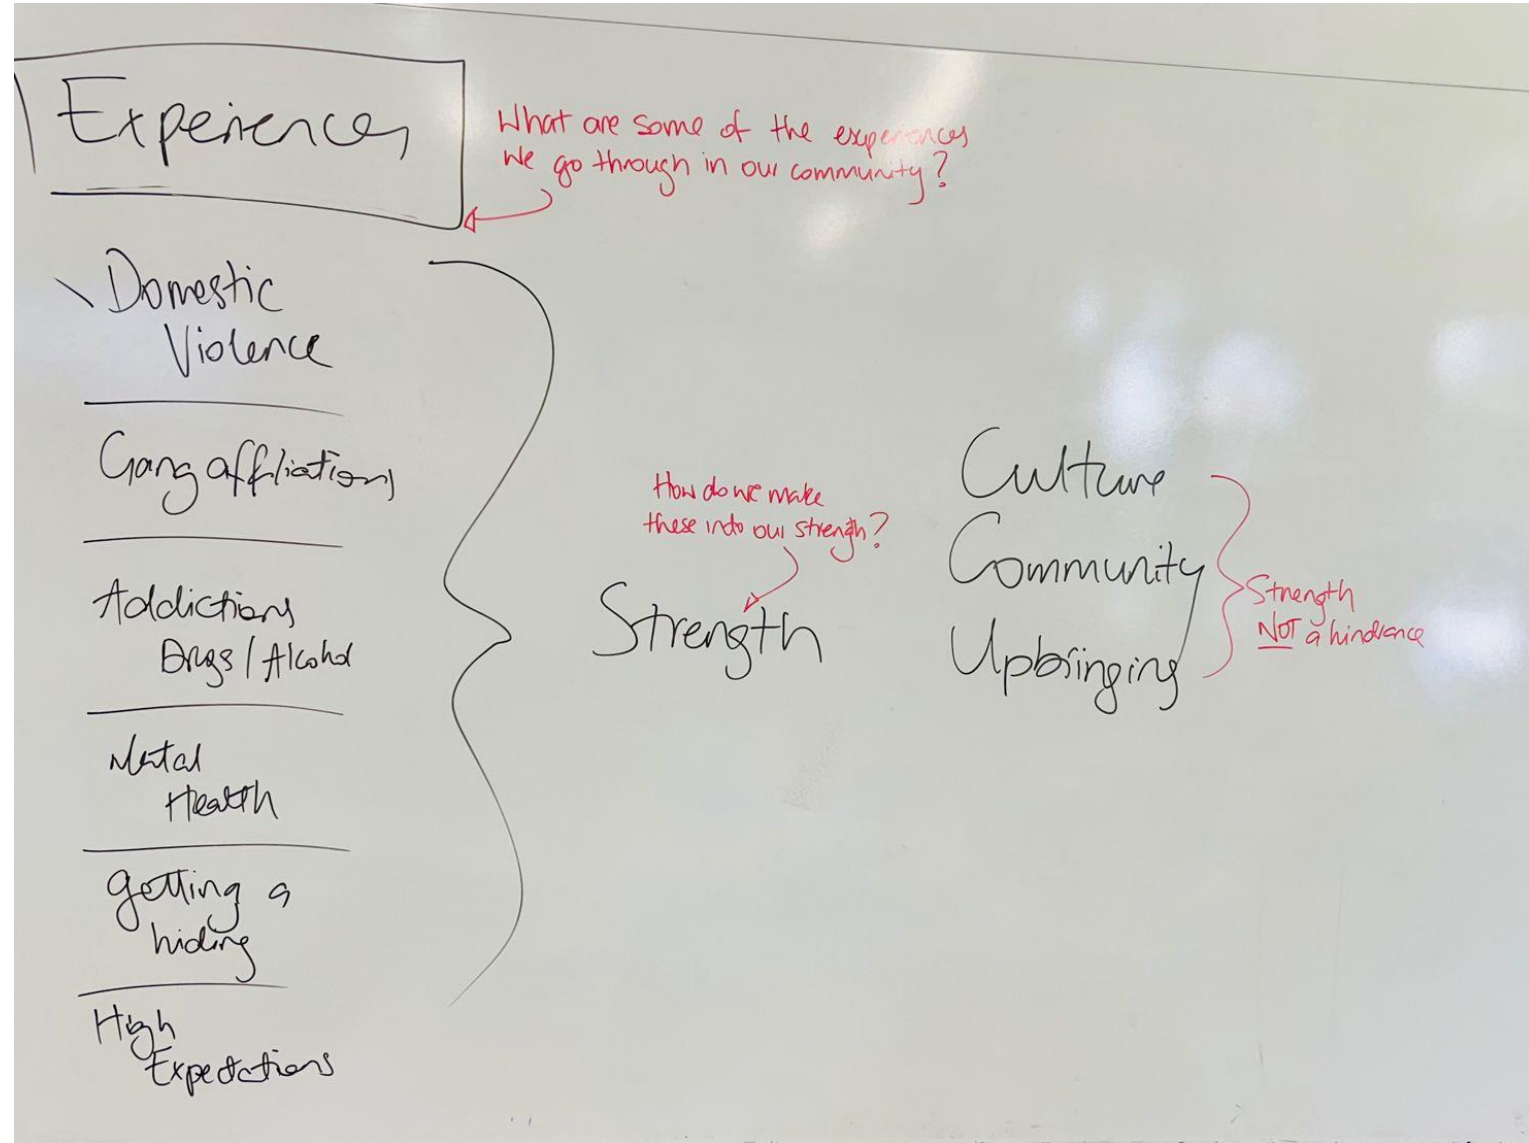 Experiences
What are some of the experiences
we go through in our community?
Domestic
Violence
Gang affiliations
Addictions
Drugs / Alcohol
Mental
Health
getting a
hiding
High
Expectations
How do we make
these into our strengh?
Strength
Culture
Community
Upbringing
Strength
NOT a hindrance